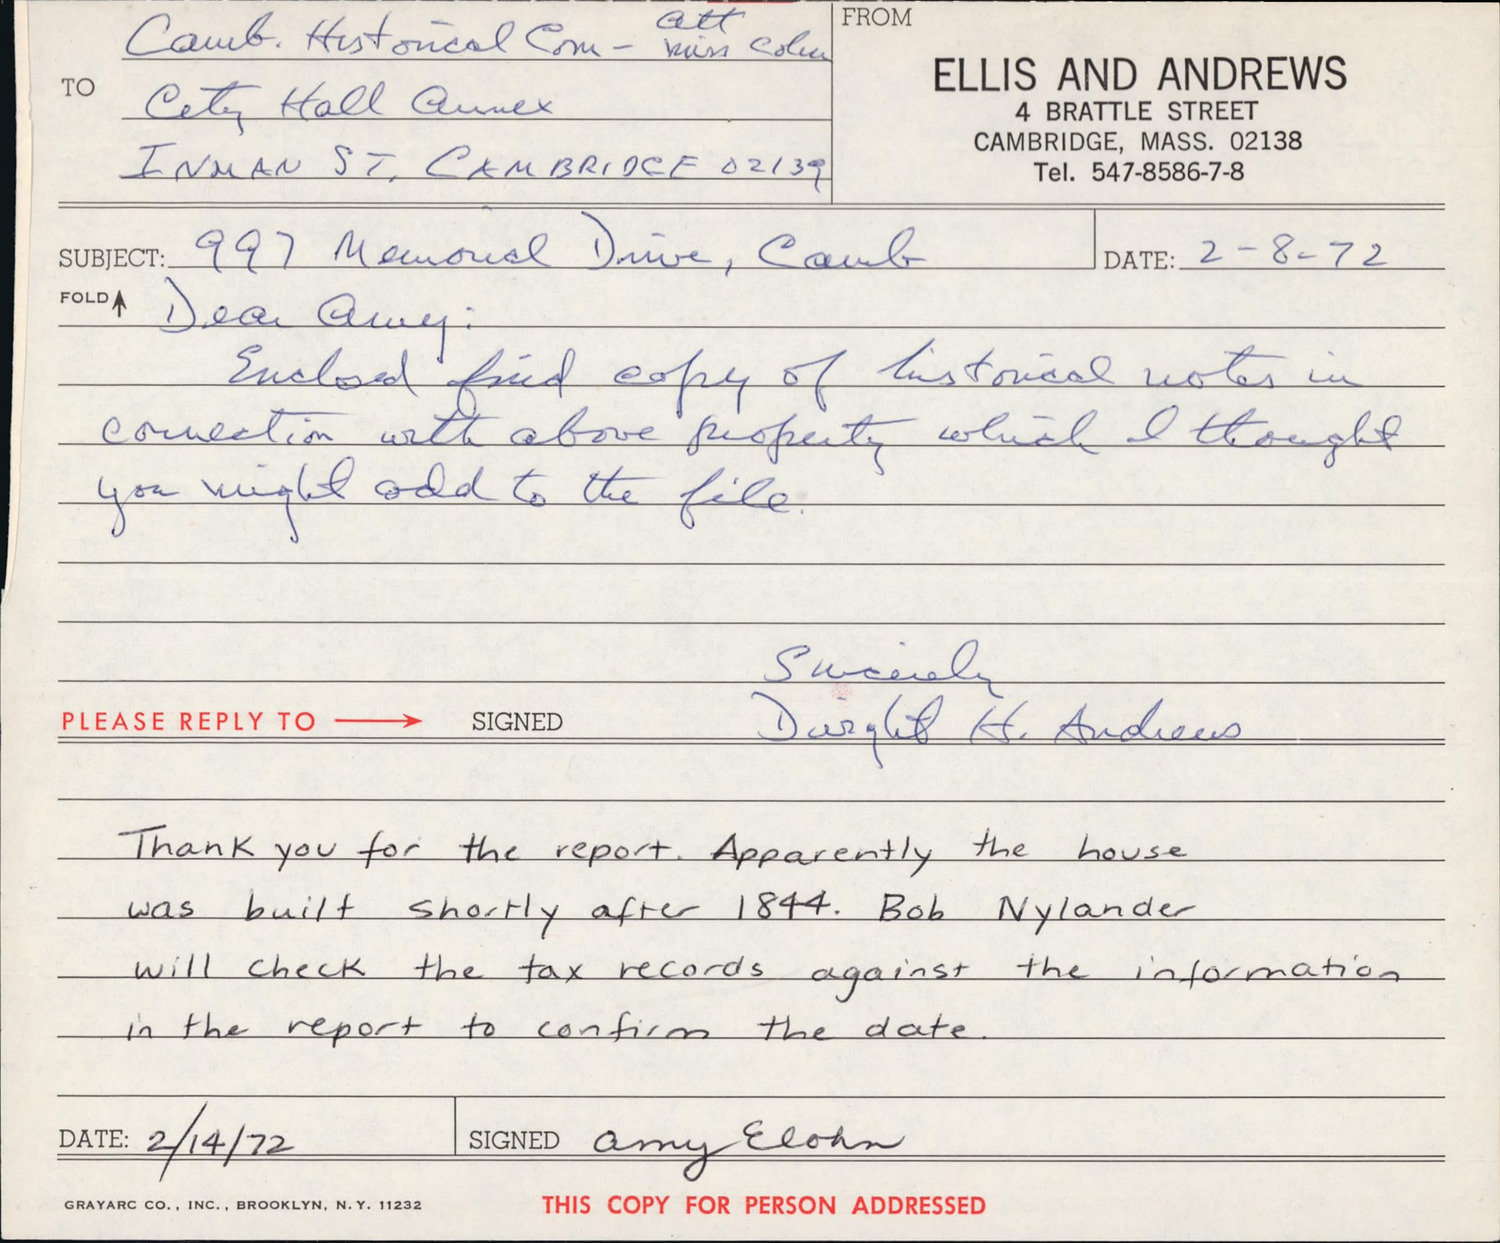 Att
Camb. Historical Com - Miss Cohn
TO
City Hall Annex
INMAN ST, CAMBRIDGE 02139
FROM
ELLIS AND ANDREWS
4 BRATTLE STREET
CAMBRIDGE, MASS. 02138
Tel. 547-8586-7-8
SUBJECT: 997 Memorial Drive, Camb
DATE: 2-8-72
FOLD
Dear Amy:
Enclosed find copy of historical notes in
connection with above property which I thought
you might add to the file.
Sincerely
PLEASE REPLY TO SIGNED Dwight H. Andrews
Thank you for the report. Apparently the house
was built shortly after 1844. Bob Nylander
will check the tax records against the information
in the report to confirm the date.
DATE: 2/14/72 SIGNED Amy Cohn
GRAYARC CO., INC., BROOKLYN, N.Y. 11232
THIS COPY FOR PERSON ADDRESSED